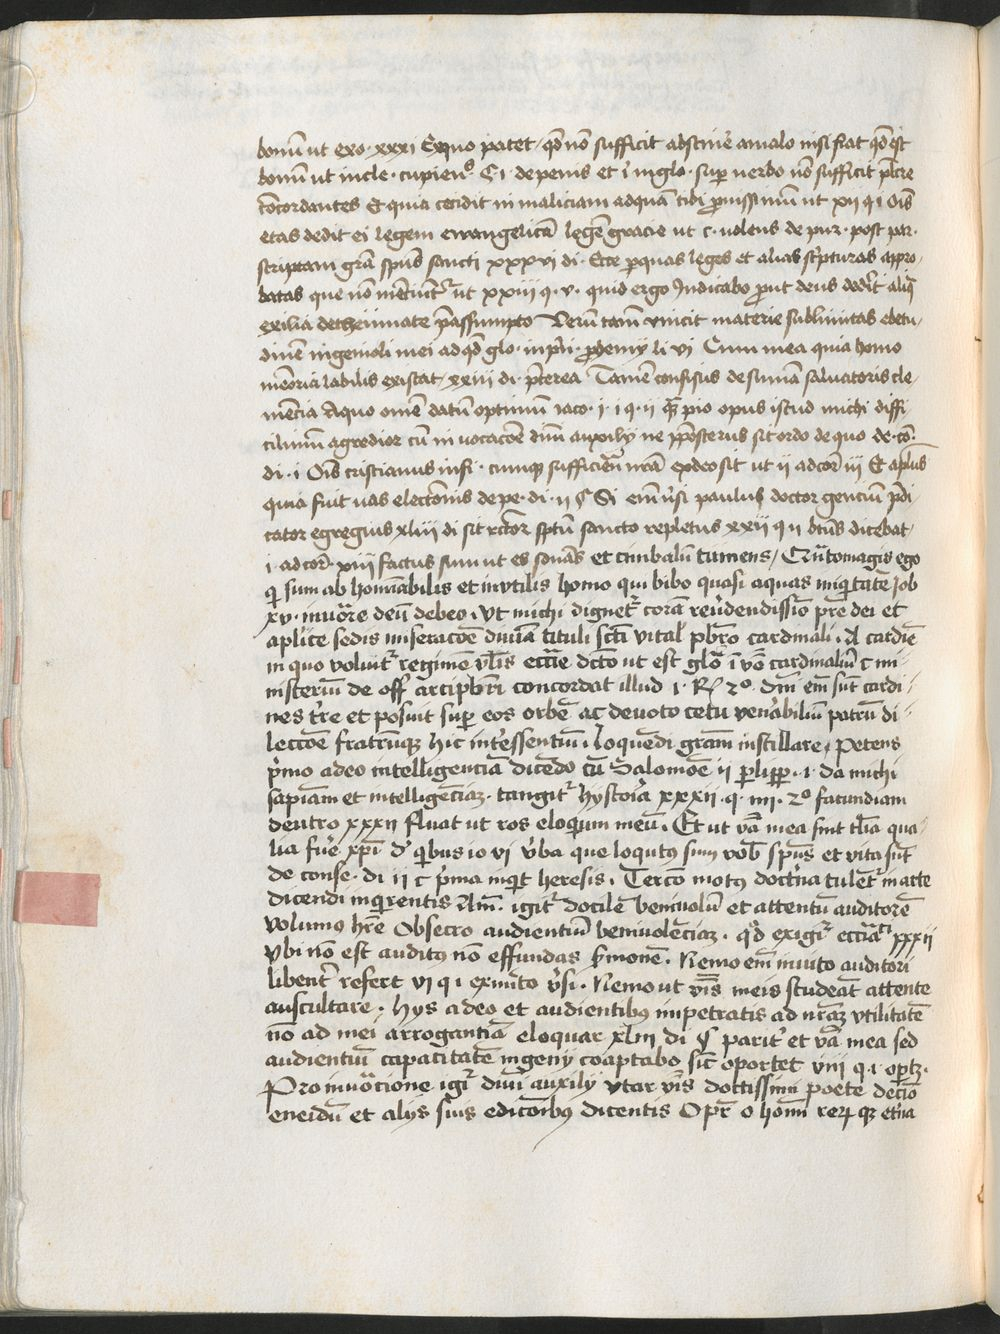 bonū ut exo · xxxi Ex quo patet / qd nō sufficit abstinē̄ a malo nisi fiat qd est
bonū ut in cle · cupienˢ · C 1 · de penis et ī in glo · sup verbo nō sufficit
cōcordantes Et quia cecidit in maliciam ad quam tibi ut xii q 1 Oīs
etas dedit ei legem ewangelicā legē gracie ut c · uolens de pur · post par ·
scriptam grā spūs sancti xxxvi di · Ecce per quas leges et alias scripturas appro /
batas que nō mēciuntʳ ut xxiii q · v · quid ergo Judicabo put deus dederit
exilia p̄assumpto Verū tam vincit materie sublimitas ebetu /
dinē ingenioli mei ad qd glo · in phi · phemij li vi Cum mea quia homo
memoria labilis existat / xxiii di · p̄terea Tamen confisus de summa saluatoris cle
mēcia A quo omē datū optimum iaco · i · 1 q · ii pio opus istud michi diffi
cilimū agredior cū in uocacōe diuī auxilij ne ppōsterus sit ordo de quo de · co ·
di · 1 Oīs cristianus nisi · cumq sufficiēcia nrā ex deo sit ut ii ad cor iii Et apl̄us
quia fuit uas electionis de pe · di · ii ¶ Si em̄ v̄si paulus doctor gencium p̄di
cator egregius xliii di sit rector sp̄tū sancto repletus xxii q ii btūs dicebat /
i · ad cor · xiii factus sum ut es sonās et cimbalū tiniens / Quātomagis ego
qi sum ab homīnabilis et invtilis homo qui bibo quasi aquas iniquitatē Job
xv · inuocare deū debeo · Vt michi dignetʳ corā reuerendissīo pre dei et
aplice sedis miseracōe diuīa tituli sctī vital pbrō cardinali · A cardīe
in quo voluitʳ regimē vlīs eccīe dcto ut est glo ī vō cardinaliū c mi /
nisteriū de off archipbrī concordat illud i · Rͤ 2º · Dnī em̄ sūt cardi /
nes tr̄e et posuit sup eos orbē ac deuoto cetu ven̄abiliū patrū di /
lectōe fratrūq hic interssentiū · loquēdi gram instillare · Petens
p̄mo a deo intelligenciā dicēdo cū Salomōe ii plipp · 1 · da michi
sapiam et intelligēciaz · tangitʳ hystoīa xxxii · q · iiii · 2º facundiam
deutro xxxii fluat ut ros eloqium meū · Et ut vā mea sint tlīa qua /
lia fuē xpī d' qibus io vi v̄ba que locutꝰ sum vob̄ spūs et vita sūt
de conse · di ii c p̄ma inqit heresis · Tercō motꝰ doctrīa tulētʳ in arte
dicendi inqirentis · igitʳ docilē beniuolū et attentū auditorē
volumus hr̄e Obsecro audientiū beniuolēciaz · qd exigitʳ eccīastⁱ xxxii
Vbi nō est auditꝰ nō effundas sermonē · Nemo em̄ inuito auditori
libentʳ refert vi q 1 ex mīto v̄si · Nemo ut v̄īs meis studeāt attente
auscultare · Hys a deo et audientibꝰ impetratis ad nrāz vtilitatē
nō ad mei arrogantiā eloquar xliii di ¶ parit̄ et vā mea sed
audientiū capacitatē ingenij coaptabo sic̄ oportet viii q · 1 · optz ·
Pro inuocatione igitʳ diui auxilij vtar v̄īs doctissimi poete decio
eneidū et alijs suis edicōibꝰ dicentis O p̄r o homī rerꝝ qz et̄na